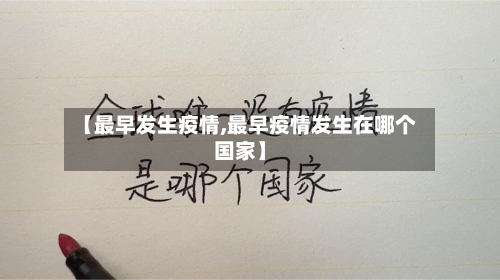 全球唯一没有疫情
【最早发生疫情,最早疫情发生在哪个
国家】
是哪个国家